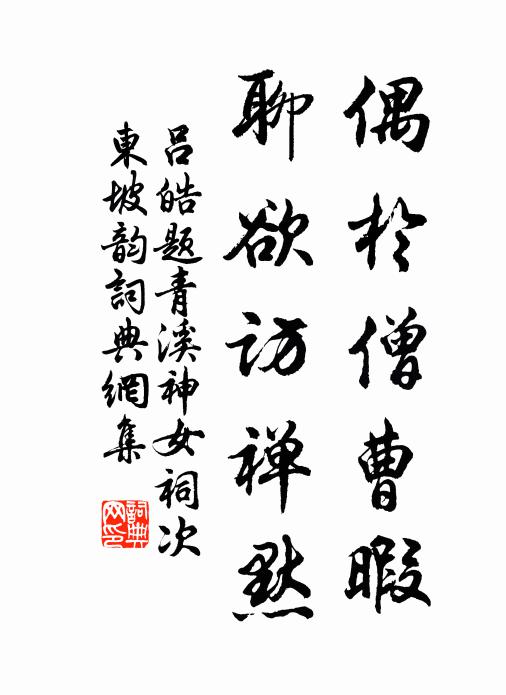 偶於僧曹暇
聊欲访禅默
吕皓题青溪神女祠次
東坡韵詞典網集
詞典
网印